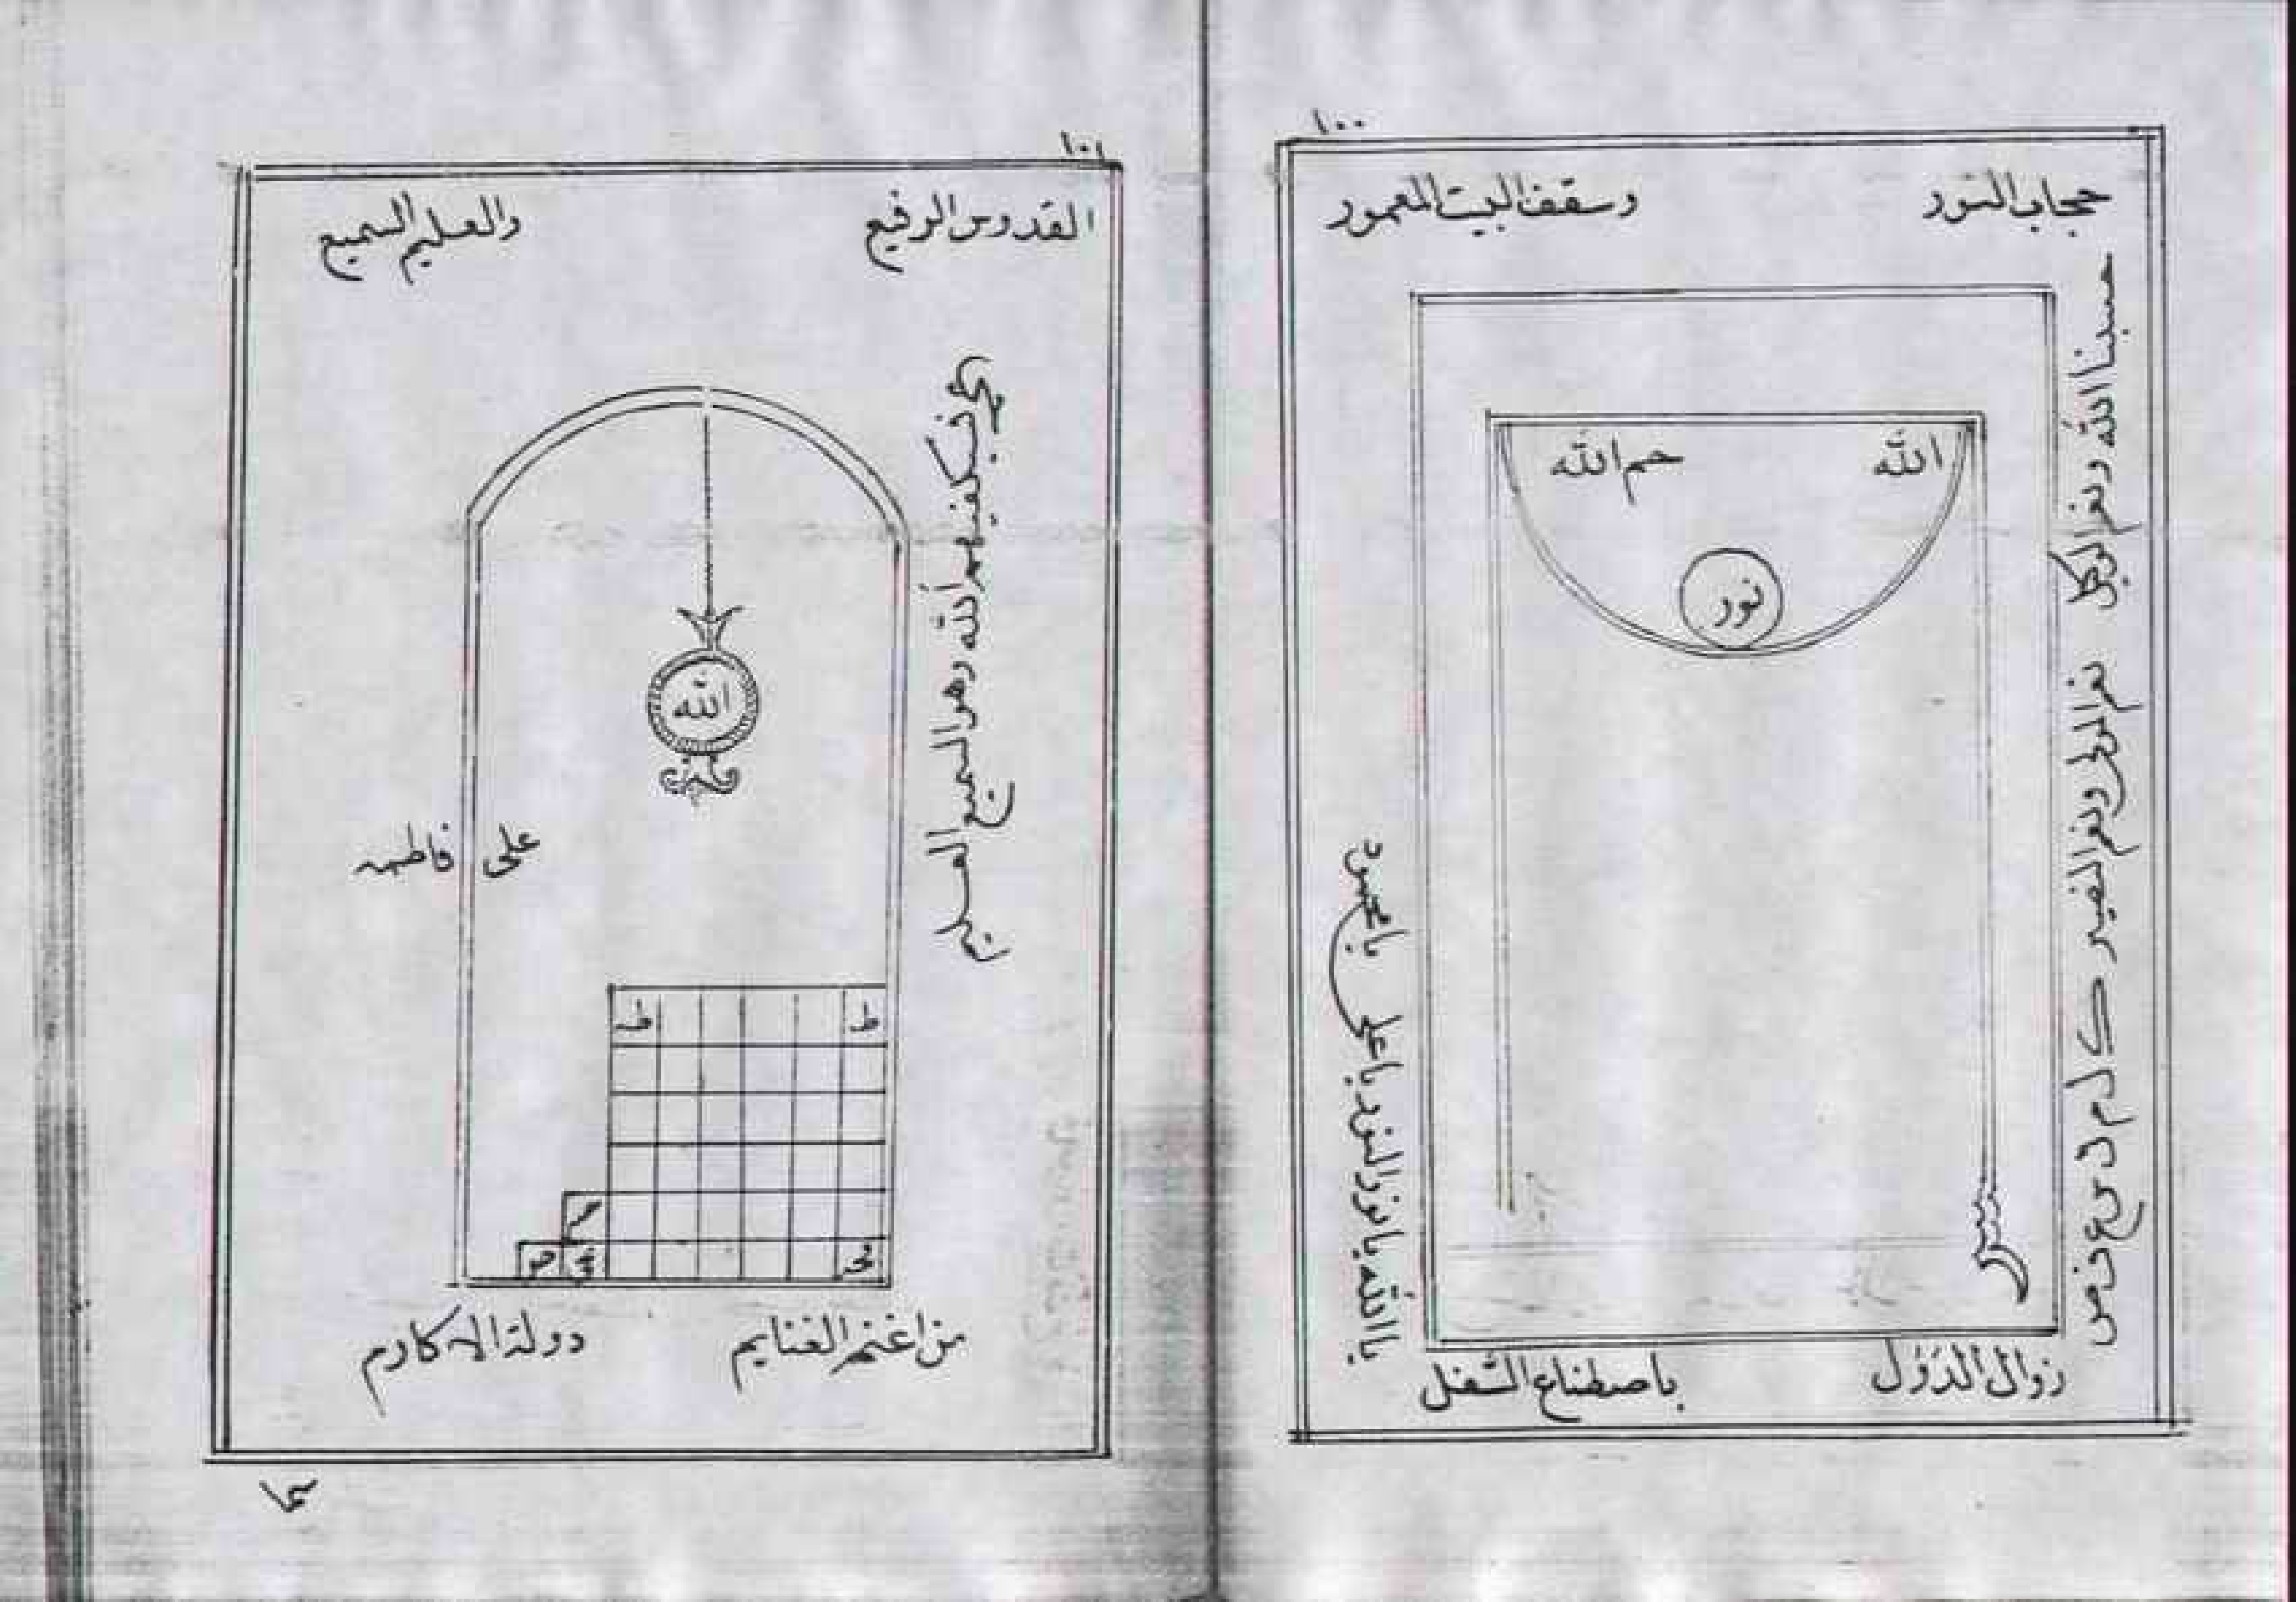 ١٠٠
حجاب النور وسقف البيت المعمور
حسبنا الله ونعم الوكيل نعم المولى ونعم النصير ك ل م ل س ع ف ص
الله حم الله
نور
يا الله يا نور النور يا علي
زوال الدول باصطناع السفل
١٠١
القدوس الرفيع والعليم السميع
فسيكفيكهم الله وهو السميع العليم
الله
علي فاطمه
ط ط
من اغنم الغنايم دولة الاكارم